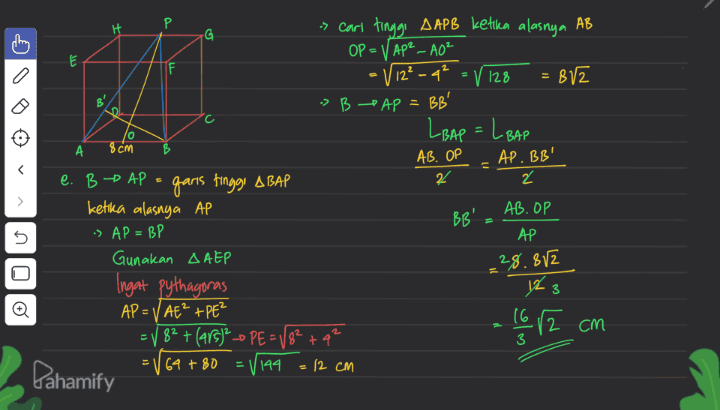 H P G
E F
B' D C
A O B
8 cm
e. B → AP = garis tinggi △BAP
ketika alasnya AP
·> AP = BP
Gunakan △AEP
Ingat pythagoras
AP = √AE² + PE²
= √8² + (4√5)² → PE = √8² + 4²
= √64 + 80 = √144 = 12 cm
·> Cari tinggi △APB ketika alasnya AB
OP = √AP² – AO²
= √12² – 4² = √128 = 8√2
·> B → AP = BB'
L BAP = L BAP
AB. OP / 2 = AP. BB' / 2
BB' = AB. OP / AP
= 2 8. 8√2 / 12 3
= 16/3 √2 cm
Pahamify